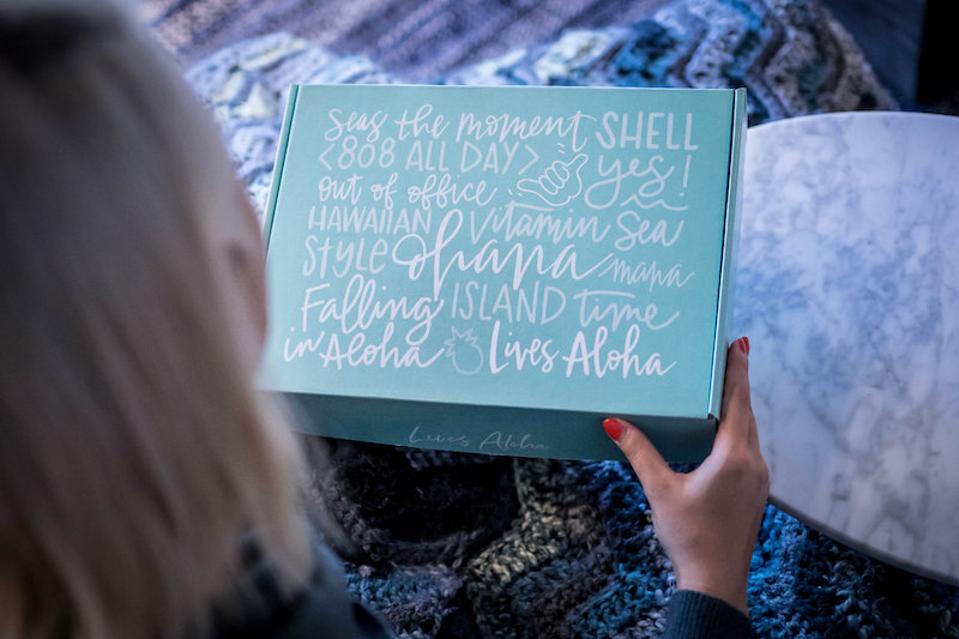 Seas the moment SHELL
<808 ALL DAY> yes!
out of office
HAWAIIAN Vitamin Sea
STYLE Ohana mana
Falling ISLAND time
in Aloha Lives Aloha
Lives Aloha